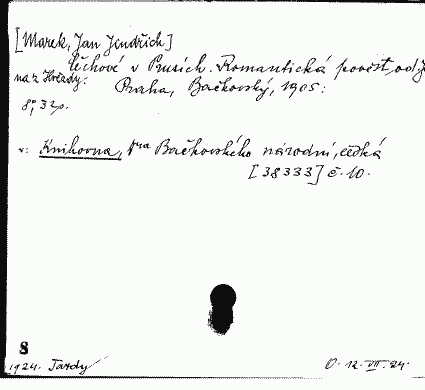 [Marek, Jan Jindřich]
Čechové v Prusích. Romantická pověst, od J
na z Hvězdy: Praha, Bačkovský, 1905:
8°, 32 p.
v: Knihovna, Dra Bačkovského národní, česká
[38333] č. 10.
8
1924. Tardy
O. 12. VII. 24.